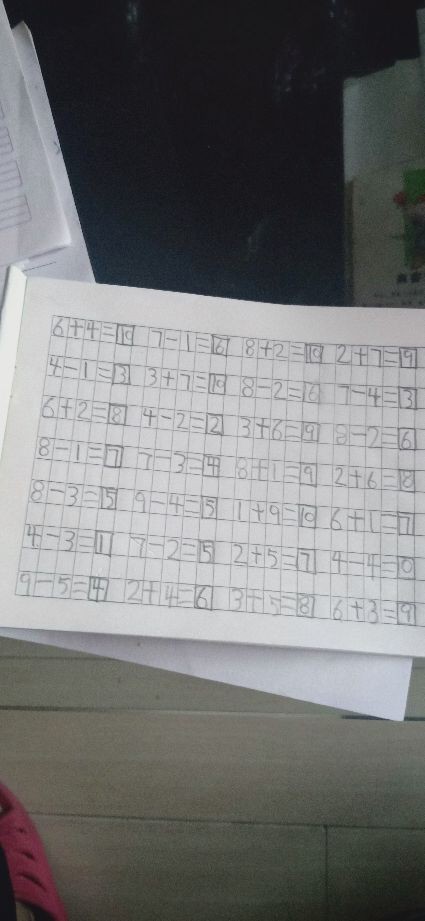 6+4=10 7-1=6 8+2=10 2+7=9
4-1=3 3+7=10 8-2=6 7-4=3
6+2=8 4-2=2 3+6=9 8-2=6
8-1=7 7-3=4 8+1=9 2+6=8
8-3=5 9-4=5 1+9=10 6+1=7
4-3=1 7-2=5 2+5=7 4-4=0
9-5=4 2+4=6 3+5=8 6+3=9